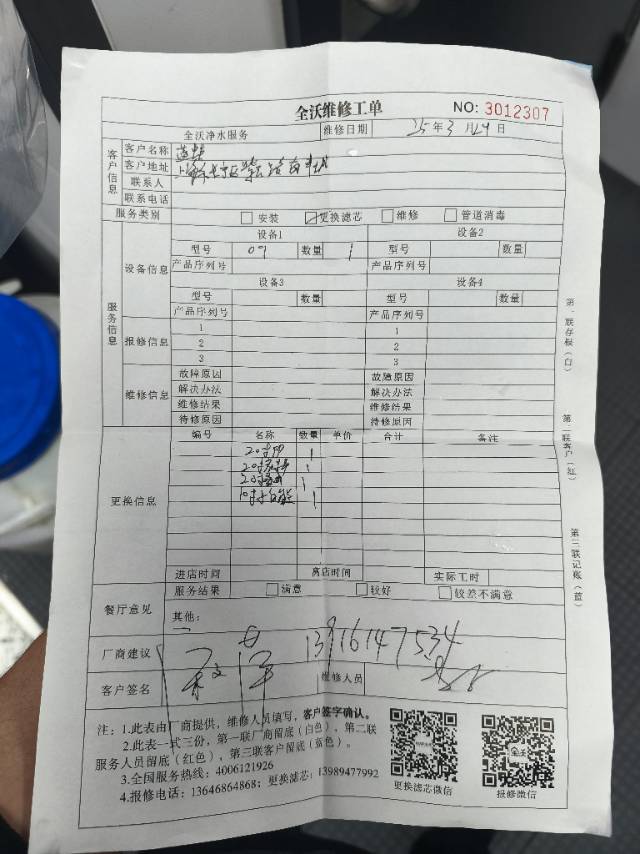 全沃维修工单
NO: 3012307
全沃净水服务 维修日期 25年3月29日
客户信息
客户名称
客户地址
联系人
联系电话
服务类别 安装 更换滤芯 维修 管道消毒
服务信息
设备信息
设备1 设备2
型号 07 数量 1 型号 数量
产品序列号 产品序列号
设备3 设备4
型号 数量 型号 数量
产品序列号 产品序列号
报修信息
1 1
2 2
3 3
维修信息
故障原因 故障原因
解决办法 解决办法
维修结果 维修结果
待修原因 待修原因
更换信息
编号 名称 数量 单价 合计 备注
20寸 1
20寸 1
20寸 1
10寸 1
进店时间 离店时间 实际工时
餐厅意见
服务结果 满意 较好 较差不满意
其他:
厂商建议 13916147534
客户签名 维修人员
注:1.此表由厂商提供,维修人员填写,客户签字确认。
2.此表一式三份,第一联厂商留底(白色),第二联
服务人员留底(红色),第三联客户留底(蓝色)。
3.全国服务热线:4006121926
4.报修电话:13646864868;更换滤芯:13989477992
更换滤芯微信 报修微信
第一联存根(白)
第二联客户(红)
第三联记账(蓝)